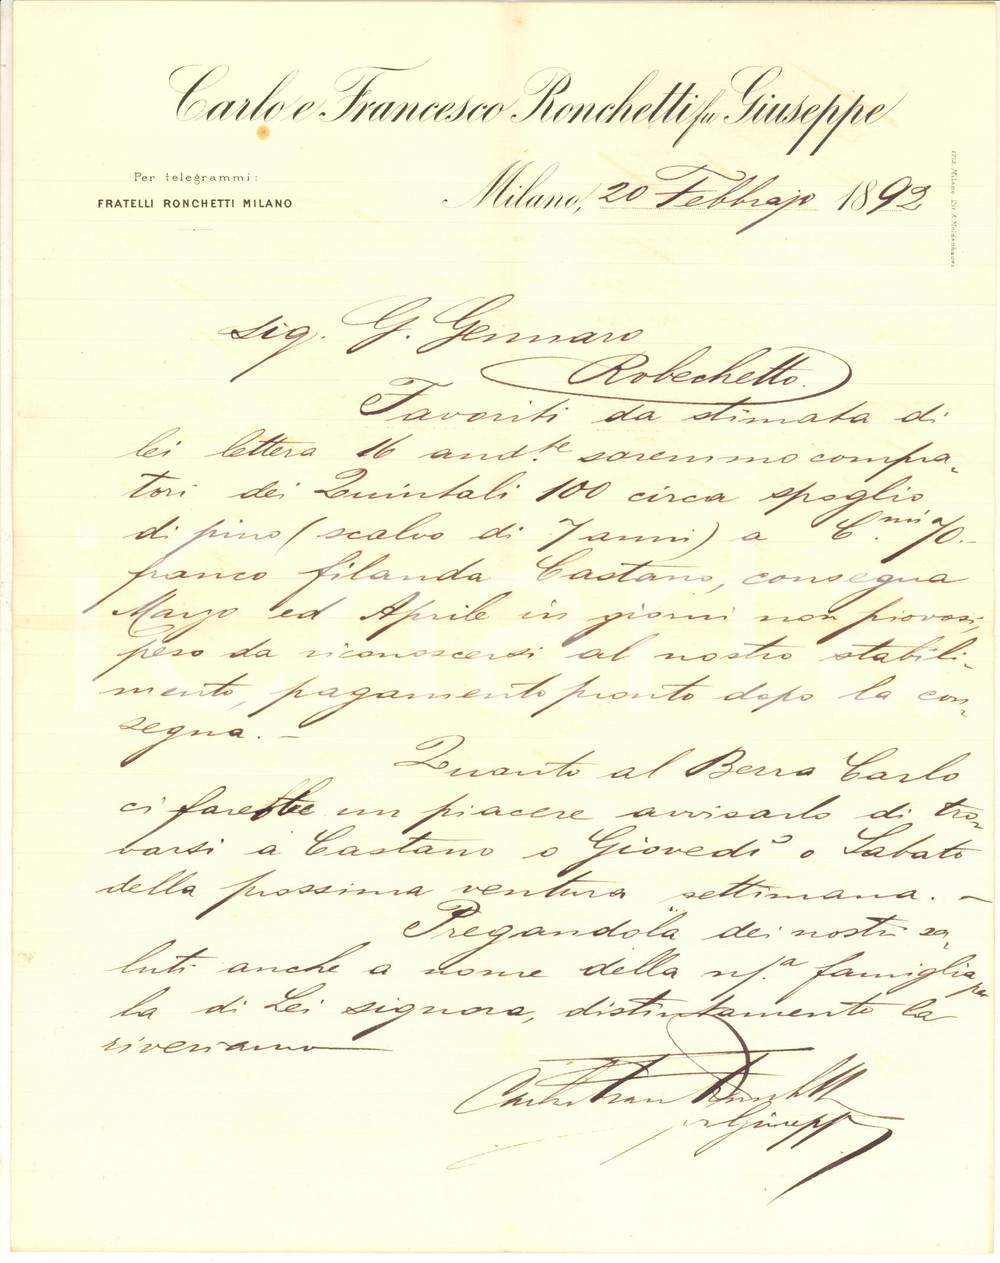 Carlo e Francesco Ronchetti fu Giuseppe
Per telegrammi:
FRATELLI RONCHETTI MILANO
Milano, 20 Febbrajo 1892
Sig. G. Gennaro
Robechetto.
Favoriti da stimata di
lei lettera 16 and.te saremmo compra-
tori dei Quintali 100 circa spoglio
di pino (scalvo di 7 anni) a C.mi
franco filanda Castano, consegna
Marzo ed Aprile in giorni non piovosi,
peso da riconoscersi al nostro stabili-
mento, pagamento pronto dopo la con-
segna. –
Quanto al Berra Carlo
ci farebbe un piacere avvisarlo di tro-
varsi a Castano o Giovedì o Sabato
della prossima ventura settimana. –
Pregandola dei nostri sa-
luti anche a nome della n/.a famiglia per
la di Lei signora, distintamente la
riveriamo
Carlo e Fran Ronchetti
fu Giuseppe